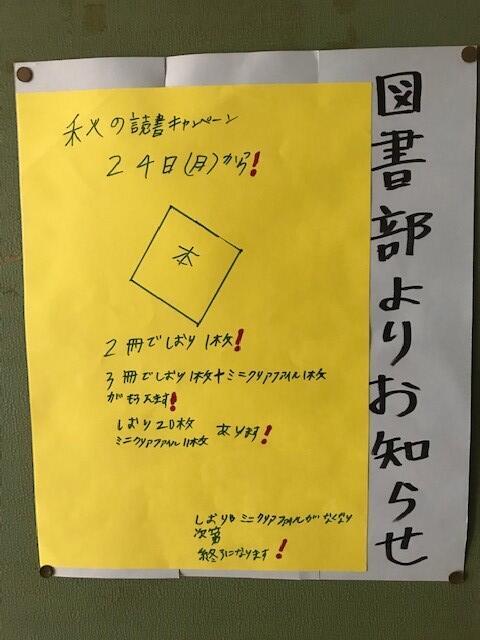 図書部よりお知らせ
秋の読書キャンペーン
24日(月)から!
本
2冊でしおり1枚!
3冊でしおり1枚+ミニクリアファイル1枚
がもらえます!
しおり20枚
ミニクリアファイル11枚 あります!
しおりもミニクリアファイルがなくなり
次第
終りになります!